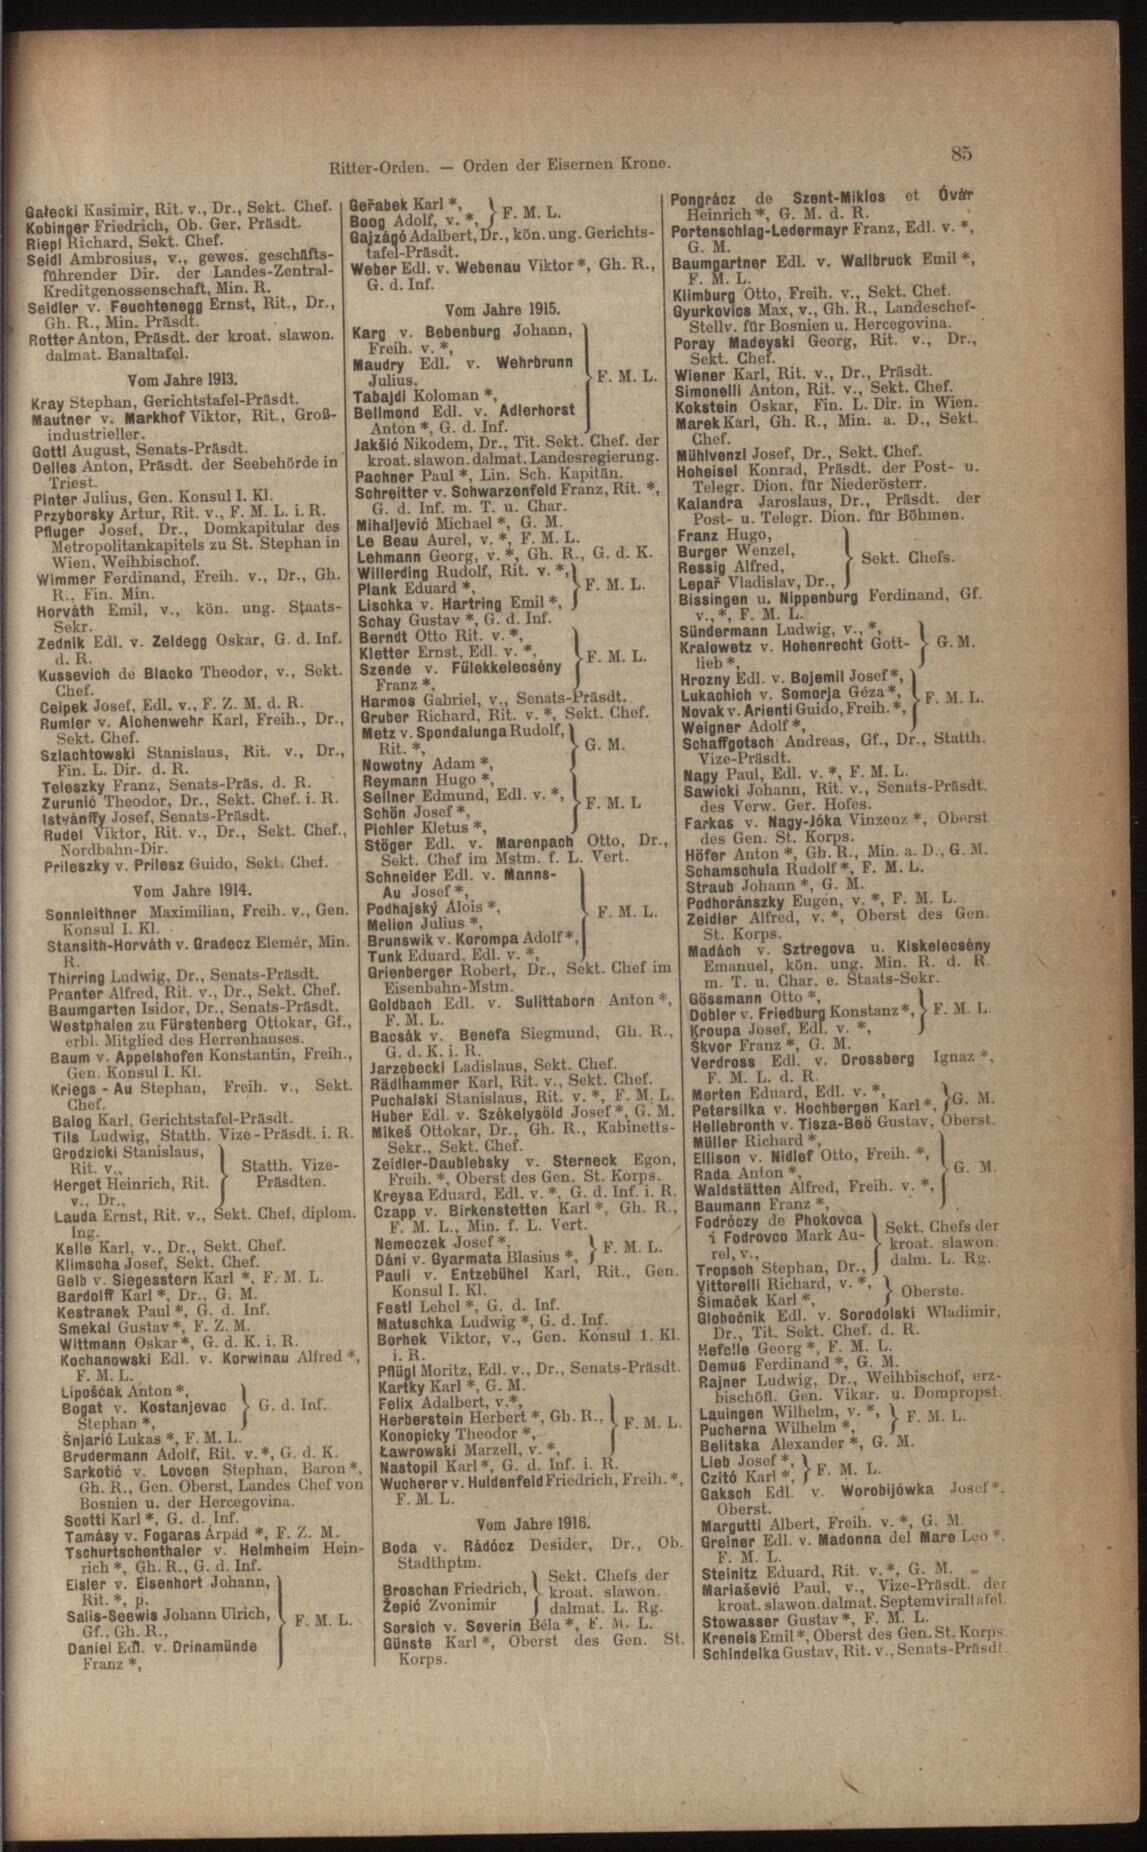 Ritter-Orden. — Orden der Eisernen Krone.
85
Gałecki Kasimir, Rit. v., Dr., Sekt. Chef.
Kobinger Friedrich, Ob. Ger. Präsdt.
Riepl Richard, Sekt. Chef.
Seidl Ambrosius, v., gewes. geschäfts-
führender Dir. der Landes-Zentral-
Kreditgenossenschaft, Min. R.
Seidler v. Feuchtenegg Ernst, Rit., Dr.,
Gh. R., Min. Präsdt.
Rotter Anton, Präsdt. der kroat. slawon.
dalmat. Banaltafel.
Vom Jahre 1913.
Kray Stephan, Gerichtstafel-Präsdt.
Mautner v. Markhof Viktor, Rit., Groß-
industrieller.
Gottl August, Senats-Präsdt.
Delles Anton, Präsdt. der Seebehörde in
Triest.
Pinter Julius, Gen. Konsul I. Kl.
Przyborsky Artur, Rit. v., F. M. L. i. R.
Pfluger Josef, Dr., Domkapitular des
Metropolitankapitels zu St. Stephan in
Wien, Weihbischof.
Wimmer Ferdinand, Freih. v., Dr., Gh.
R., Fin. Min.
Horváth Emil, v., kön. ung. Staats-
Sekr.
Zednik Edl. v. Zeldegg Oskar, G. d. Inf.
d. R.
Kussevich de Blacko Theodor, v., Sekt.
Chef.
Ceipek Josef, Edl. v., F. Z. M. d. R.
Rumler v. Aichenwehr Karl, Freih., Dr.,
Sekt. Chef.
Szlachtowski Stanislaus, Rit. v., Dr.,
Fin. L. Dir. d. R.
Teleszky Franz, Senats-Präs. d. R.
Zurunić Theodor, Dr., Sekt. Chef. i. R.
Istvánffy Josef, Senats-Präsdt.
Rudel Viktor, Rit. v., Dr., Sekt. Chef.,
Nordbahn-Dir.
Prileszky v. Prilesz Guido, Sekt. Chef.
Vom Jahre 1914.
Sonnleithner Maximilian, Freih. v., Gen.
Konsul I. Kl.
Stansith-Horváth v. Gradecz Elemér, Min.
R.
Thirring Ludwig, Dr., Senats-Präsdt.
Pranter Alfred, Rit. v., Dr., Sekt. Chef.
Baumgarten Isidor, Dr., Senats-Präsdt.
Westphalen zu Fürstenberg Ottokar, Gf.,
erbl. Mitglied des Herrenhauses.
Baum v. Appelshofen Konstantin, Freih.,
Gen. Konsul I. Kl.
Kriegs - Au Stephan, Freih. v., Sekt.
Chef.
Balog Karl, Gerichtstafel-Präsdt.
Tils Ludwig, Statth. Vize-Präsdt. i. R.
Grodzicki Stanislaus,
Rit. v., } Statth. Vize-
Herget Heinrich, Rit. Präsdten.
v., Dr.,
Lauda Ernst, Rit. v., Sekt. Chef, diplom.
Ing.
Kelle Karl, v., Dr., Sekt. Chef.
Klimscha Josef, Sekt. Chef.
Gelb v. Siegesstern Karl *, F. M. L.
Bardolff Karl *, Dr., G. M.
Kestranek Paul *, G. d. Inf.
Smekal Gustav *, F. Z. M.
Wittmann Oskar *, G. d. K. i. R.
Kochanowski Edl. v. Korwinau Alfred *,
F. M. L.
Lipošćak Anton *,
Bogat v. Kostanjevac } G. d. Inf.
Stephan *,
Šnjarić Lukas *, F. M. L.
Brudermann Adolf, Rit. v. *, G. d. K.
Sarkotić v. Lovcen Stephan, Baron *,
Gh. R., Gen. Oberst, Landes Chef von
Bosnien u. der Hercegovina.
Scotti Karl *, G. d. Inf.
Tamásy v. Fogaras Árpád *, F. Z. M.
Tschurtschenthaler v. Helmheim Hein-
rich *, Gh. R., G. d. Inf.
Eisler v. Eisenhort Johann,
Rit. *, p.
Salis-Seewis Johann Ulrich,
Gf., Gh. R., } F. M. L.
Daniel Edl. v. Drinamünde
Franz *,
Geřabek Karl *,
Boog Adolf, v. *, } F. M. L.
Gajzágó Adalbert, Dr., kön. ung. Gerichts-
tafel-Präsdt.
Weber Edl. v. Webenau Viktor *, Gh. R.,
G. d. Inf.
Vom Jahre 1915.
Karg v. Bebenburg Johann,
Freih. v. *,
Maudry Edl. v. Wehrbrunn
Julius, } F. M. L.
Tabajdi Koloman *,
Bellmond Edl. v. Adlerhorst
Anton *, G. d. Inf.
Jakšić Nikodem, Dr., Tit. Sekt. Chef. der
kroat. slawon. dalmat. Landesregierung.
Pachner Paul *, Lin. Sch. Kapitän.
Schreitter v. Schwarzenfeld Franz, Rit. *,
G. d. Inf. m. T. u. Char.
Mihaljević Michael *, G. M.
Le Beau Aurel, v. *, F. M. L.
Lehmann Georg, v. *, Gh. R., G. d. K.
Willerding Rudolf, Rit. v. *,
Plank Eduard *, } F. M. L.
Lischka v. Hartring Emil *,
Schay Gustav *, G. d. Inf.
Berndt Otto Rit. v. *,
Kletter Ernst, Edl. v. *,
Szende v. Fülekkelecsény } F. M. L.
Franz *,
Harmos Gabriel, v., Senats-Präsdt.
Gruber Richard, Rit. v. *, Sekt. Chef.
Metz v. Spondalunga Rudolf,
Rit. *, } G. M.
Nowotny Adam *,
Reymann Hugo *,
Sellner Edmund, Edl. v. *,
Schön Josef *, } F. M. L
Pichler Kletus *,
Stöger Edl. v. Marenpach Otto, Dr.,
Sekt. Chef im Mstm. f. L. Vert.
Schneider Edl. v. Manns-
Au Josef *,
Podhajský Alois *, } F. M. L.
Melion Julius *,
Brunswik v. Korompa Adolf *,
Tunk Eduard, Edl. v. *,
Grienberger Robert, Dr., Sekt. Chef im
Eisenbahn-Mstm.
Goldbach Edl. v. Sulittaborn Anton *,
F. M. L.
Bacsák v. Benefa Siegmund, Gh. R.,
G. d. K. i. R.
Jarzębecki Ladislaus, Sekt. Chef.
Rädlhammer Karl, Rit. v., Sekt. Chef.
Puchalski Stanislaus, Rit. v. *, F. M. L.
Huber Edl. v. Székelysöld Josef *, G. M.
Mikeš Ottokar, Dr., Gh. R., Kabinetts-
Sekr., Sekt. Chef.
Zeidler-Daublebsky v. Sterneck Egon,
Freih. *, Oberst des Gen. St. Korps.
Kreysa Eduard, Edl. v. *, G. d. Inf. i. R.
Czapp v. Birkenstetten Karl *, Gh. R.,
F. M. L., Min. f. L. Vert.
Nemeczek Josef *,
Dáni v. Gyarmata Blasius *, } F. M. L.
Pauli v. Entzebühel Karl, Rit., Gen.
Konsul I. Kl.
Festl Lehel *, G. d. Inf.
Matuschka Ludwig *, G. d. Inf.
Borhek Viktor, v., Gen. Konsul 1. Kl.
i. R.
Pflügl Moritz, Edl. v., Dr., Senats-Präsdt.
Kartky Karl *, G. M.
Felix Adalbert, v. *,
Herberstein Herbert *, Gh. R., } F. M. L.
Konopicky Theodor *,
Ławrowski Marzell, v. *,
Nastopil Karl *, G. d. Inf. i. R.
Wucherer v. Huldenfeld Friedrich, Freih. *,
F. M. L.
Vom Jahre 1916.
Boda v. Rádócz Desider, Dr., Ob.
Stadthptm.
Sekt. Chefs der
Broschan Friedrich, } kroat. slawon.
Žepić Zvonimir dalmat. L. Rg.
Sorsich v. Severin Béla *, F. M. L.
Günste Karl *, Oberst des Gen. St.
Korps.
Pongrácz de Szent-Miklos et Óvár
Heinrich *, G. M. d. R.
Portenschlag-Ledermayr Franz, Edl. v. *,
G. M.
Baumgartner Edl. v. Wallbruck Emil *,
F. M. L.
Klimburg Otto, Freih. v., Sekt. Chef.
Gyurkovics Max, v., Gh. R., Landeschef-
Stellv. für Bosnien u. Hercegovina.
Poray Madeyski Georg, Rit. v., Dr.,
Sekt. Chef.
Wiener Karl, Rit. v., Dr., Präsdt.
Simonelli Anton, Rit. v., Sekt. Chef.
Kokstein Oskar, Fin. L. Dir. in Wien.
Marek Karl, Gh. R., Min. a. D., Sekt.
Chef.
Mühlvenzl Josef, Dr., Sekt. Chef.
Hoheisel Konrad, Präsdt. der Post- u.
Telegr. Dion. für Niederösterr.
Kalandra Jaroslaus, Dr., Präsdt. der
Post- u. Telegr. Dion. für Böhmen.
Franz Hugo,
Burger Wenzel, } Sekt. Chefs.
Ressig Alfred,
Lepař Vladislav, Dr.,
Bissingen u. Nippenburg Ferdinand, Gf.
v., *, F. M. L.
Sündermann Ludwig, v., *,
Kralowetz v. Hohenrecht Gott- } G. M.
lieb *,
Hrozny Edl. v. Bojemil Josef *,
Lukachich v. Somorja Géza *, } F. M. L.
Novak v. Arienti Guido, Freih. *,
Weigner Adolf *,
Schaffgotsch Andreas, Gf., Dr., Statth.
Vize-Präsdt.
Nagy Paul, Edl. v. *, F. M. L.
Sawicki Johann, Rit. v., Senats-Präsdt.
des Verw. Ger. Hofes.
Farkas v. Nagy-Jóka Vinzenz *, Oberst
des Gen. St. Korps.
Höfer Anton *, Gh. R., Min. a. D., G. M.
Schamschula Rudolf *, F. M. L.
Straub Johann *, G. M.
Podhoránszky Eugen, v. *, F. M. L.
Zeidler Alfred, v. *, Oberst des Gen.
St. Korps.
Madách v. Sztregova u. Kiskelecsény
Emanuel, kön. ung. Min. R. d. R.
m. T. u. Char. e. Staats-Sekr.
Gössmann Otto *,
Dobler v. Friedburg Konstanz *, } F. M. L.
Kroupa Josef, Edl. v. *,
Škvor Franz *, G. M.
Verdross Edl. v. Drossberg Ignaz *,
F. M. L. d. R.
Merten Eduard, Edl. v. *,
Petersilka v. Hochbergen Karl *, } G. M.
Hellebronth v. Tisza-Beö Gustav, Oberst.
Müller Richard *,
Ellison v. Nidlef Otto, Freih. *,
Rada Anton *, } G. M.
Waldstätten Alfred, Freih. v. *,
Baumann Franz *,
Fodróczy de Phokovca
i Fodrovco Mark Au- } Sekt. Chefs der
rel, v., kroat. slawon.
Tropsch Stephan, Dr., dalm. L. Rg.
Vittorelli Richard, v. *,
Šimaček Karl *, } Oberste.
Globočnik Edl. v. Sorodolski Wladimir,
Dr., Tit. Sekt. Chef. d. R.
Hefelle Georg *, F. M. L.
Demus Ferdinand *, G. M.
Rajner Ludwig, Dr., Weihbischof, erz-
bischöfl. Gen. Vikar. u. Dompropst.
Lauingen Wilhelm, v. *,
Pucherna Wilhelm *, } F. M. L.
Belitska Alexander *, G. M.
Lieb Josef *,
Czitó Karl *, } F. M. L.
Gaksch Edl. v. Worobijówka Josef *,
Oberst.
Margutti Albert, Freih. v. *, G. M.
Greiner Edl. v. Madonna del Mare Leo *,
F. M. L.
Steinitz Eduard, Rit. v. *, G. M.
Mariašević Paul, v., Vize-Präsdt. der
kroat. slawon. dalmat. Septemviraltafel.
Stowasser Gustav *, F. M. L.
Kreneis Emil *, Oberst des Gen. St. Korps.
Schindelka Gustav, Rit. v., Senats-Präsdt